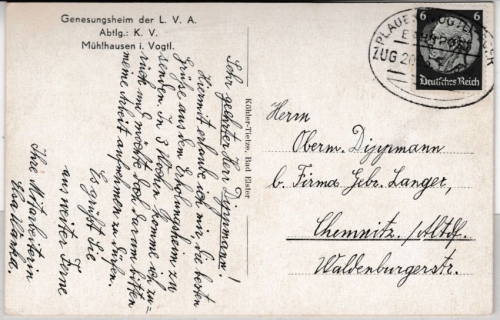 Genesungsheim der L. V. A.
Abtlg.: K. V.
Mühlhausen i. Vogtl.
Sehr geehrter Herr Dippmann!
Hiermit erlaube ich mir, die besten
Grüße aus dem Erholungsheim zu
senden. In 3 Wochen komme ich zu-
rück und möchte doch darum bitten
meine Arbeit aufnehmen zu dürfen.
Es grüßt Sie
aus weiter Ferne
Ihre Mitarbeiterin
Köhler-Tietze, Bad Elster
PLAUEN
BAHNPOST
ZUG
6 6
Deutsches Reich
Herrn
Oberm. Dippmann
b. Firma Gebr. Langer,
Chemnitz./Altdf.
Waldenburgerstr.